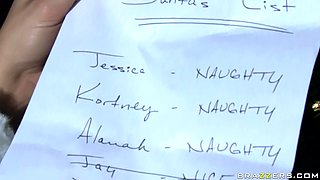 Santa's List
Jessica - NAUGHTY
Kortney - NAUGHTY
Alanah - NAUGHTY
Jay - NICE
BRAZZERS.COM